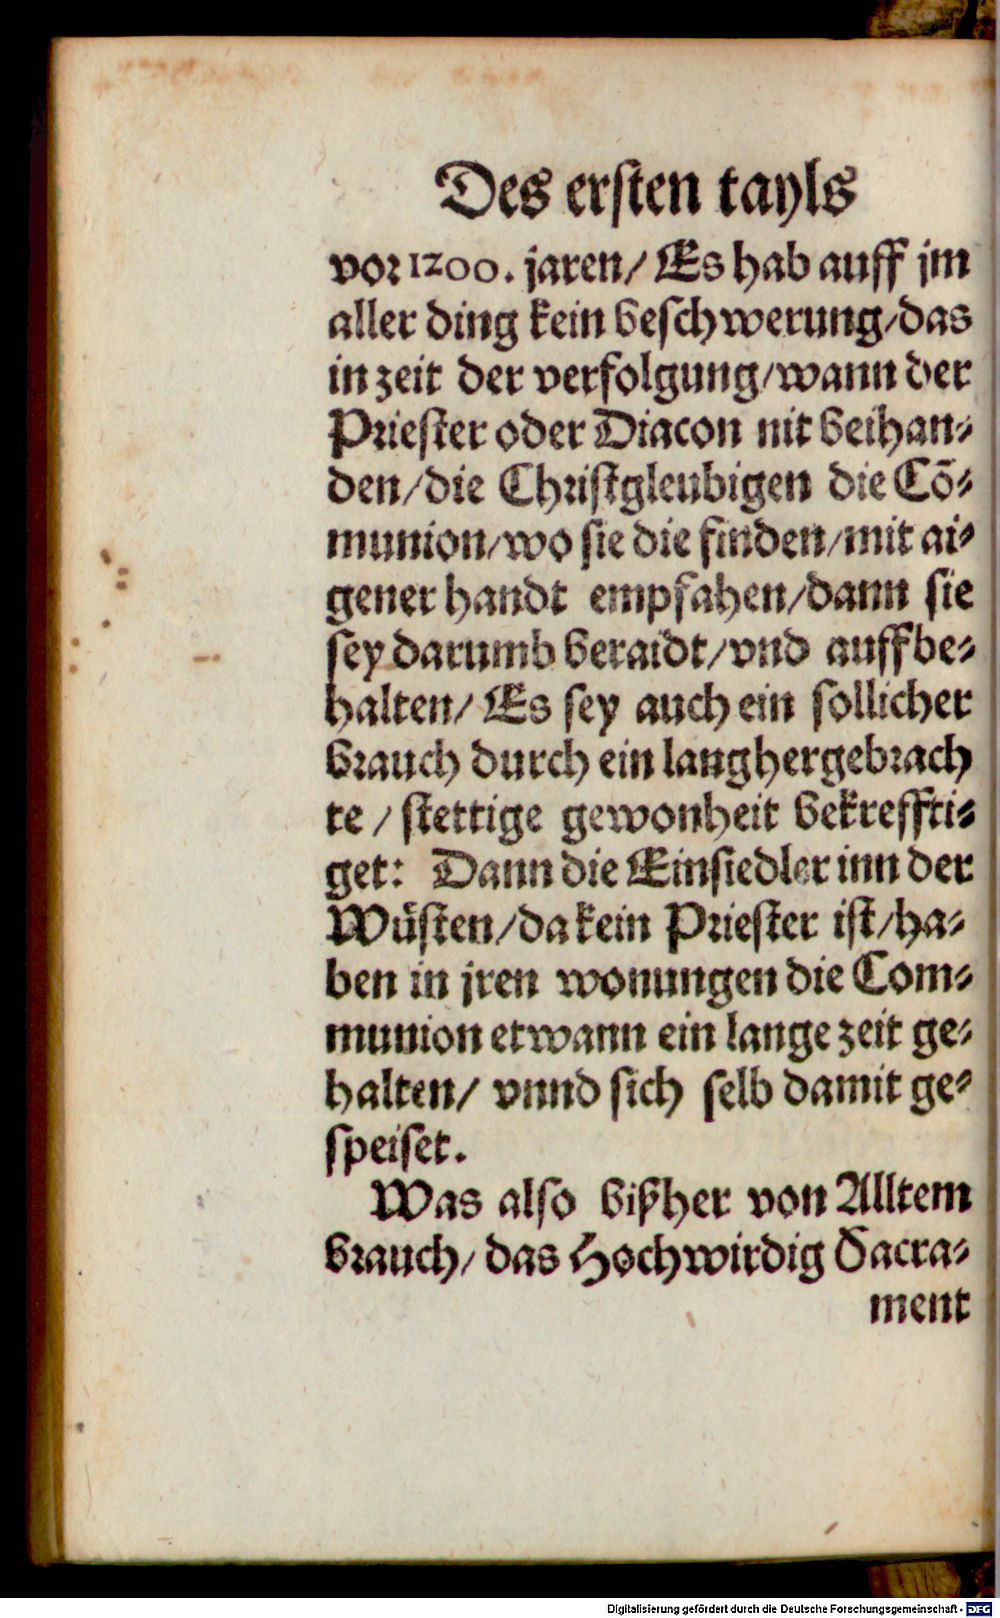 Des ersten tayls
vor 1200. jaren/ Es hab auff jm
aller ding kein beschwerung/das
in zeit der verfolgung/wann der
Priester oder Diacon nit beihan-
den/die Christgleubigen die Cõ-
munion/wo sie die finden/mit ai-
gener handt empfahen/dann sie
sey darumb beraidt/vnd auffbe-
halten/ Es sey auch ein sollicher
brauch durch ein langhergebrach
te / stettige gewonheit bekreffti-
get: Dann die Einsiedler inn der
Wüsten/da kein Priester ist/ha-
ben in jren wonungen die Com-
munion etwann ein lange zeit ge-
halten/ vnnd sich selb damit ge-
speiset.
Was also bißher von Alltem
brauch/ das Hochwirdig Sacra-
ment
Digitalisierung gefördert durch die Deutsche Forschungsgemeinschaft - DFG